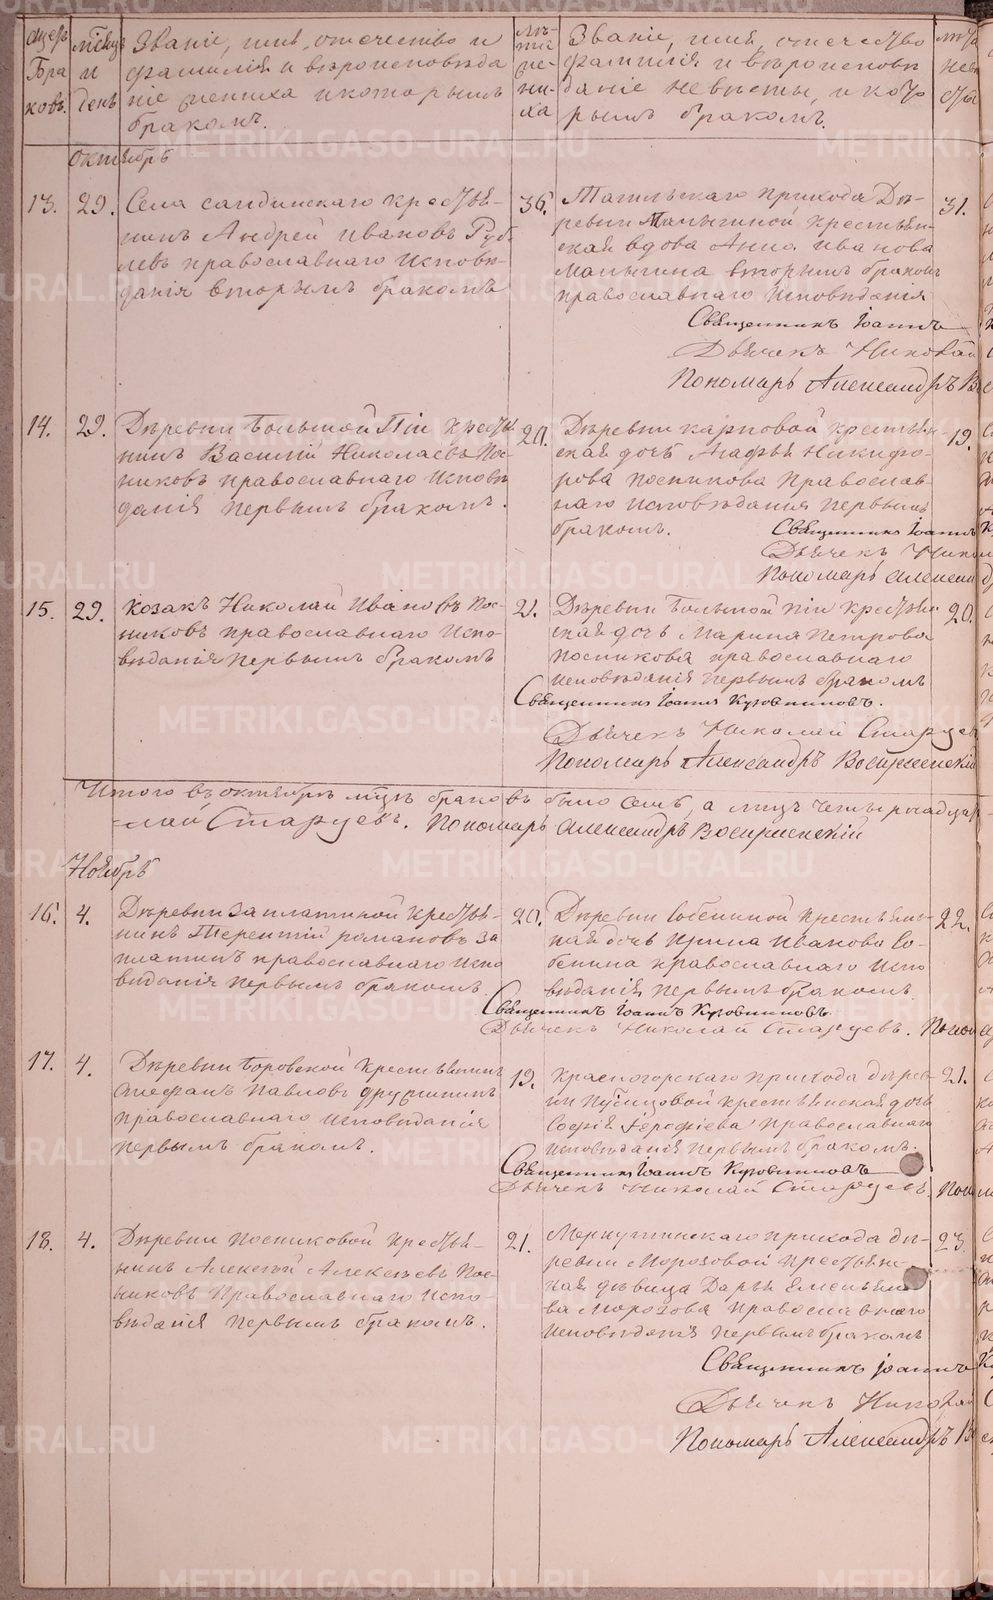 Бра
ковъ.
мѣсяцъ
и
день
Званіе, имя, отечество и
фамилія и вѣроисповѣда
ніе жениха и которымъ
бракомъ.
лѣ-
та
же-
ни-
ха
Званіе, имя, отечество
фамилія и вѣроисповѣ
даніе невѣсты, и кото
рымъ бракомъ.
лѣта
невѣ
сты
октябрь
13. 29.
Села крестья-
нинъ Андрей Ивановъ Руб
левъ православнаго исповѣ-
данія вторымъ бракомъ
36.
прихода Де-
ревни Малыгиной крестьян-
ская вдова Анна Иванова
Малыгина вторымъ бракомъ
православнаго исповѣданія
31.
Священникъ Іоаннъ
Дьячекъ Николай
Пономарь Александръ Вос
14. 29.
Деревни Большой Піи крестья
нинъ Василій Николаевъ Пос-
никовъ православнаго исповѣ
данія первымъ бракомъ.
20.
Деревни Карповой крестьян-
ская дочь Агафья Никифо-
рова Посникова православ-
наго исповѣданія первымъ
бракомъ.
19.
Священникъ Іоаннъ
Дьячекъ Никол
Пономарь Алексан
15. 29.
козакъ Николай Ивановъ Пос-
никовъ православнаго испо-
вѣданія первымъ бракомъ
21.
Деревни Большой Піи крестьян
ская дочь Марина Петрова
Посникова православнаго
исповѣданія первымъ бракомъ
20.
Священникъ Іоаннъ Кузовниковъ.
Дьячекъ Николай Старцев
Пономарь Александръ Воскресенскій
Итого въ октябрѣ мцѣ браковъ было семь, а лицъ четырнадцат
лай Старцевъ. Пономарь Александръ Воскресенскій
Ноябрь
16. 4.
Деревни Заплатиной крестья-
нинъ Терентій Романовъ За
платинъ православнаго испо
вѣданія первымъ бракомъ.
20.
Деревни Собениной крестьянс-
кая дочь Ирина Иванова Со-
бенина православнаго испо
вѣданія первымъ бракомъ.
22.
Священникъ Іоаннъ Кузовниковъ.
Дьячекъ Николай Старцевъ. Поном
17. 4.
Деревни Боровской крестьянинъ
Стефанъ Павловъ Дружининъ
православнаго исповѣданія
первымъ бракомъ.
19.
Красногорскаго прихода дерев-
ни крестьянская дочь
Софія Ерофіева православнаго
исповѣданія первымъ бракомъ.
21.
Священникъ Іоаннъ Кузовниковъ
Дьячекъ Николай Старцевъ. Поно
18. 4.
Деревни Посниковой крестья-
нинъ Алексѣй Алексѣевъ Пос-
никовъ православнаго испо-
вѣданія первымъ бракомъ.
21.
Меркушинскаго прихода де-
ревни Морозовой крестьянс-
кая дѣвица Дарья Емельяно-
ва Морозова православнаго
исповѣданія первымъ бракомъ
23.
Священникъ Іоаннъ
Дьячекъ Николай
Пономарь Александръ В
METRIKI.GASO-URAL.RU